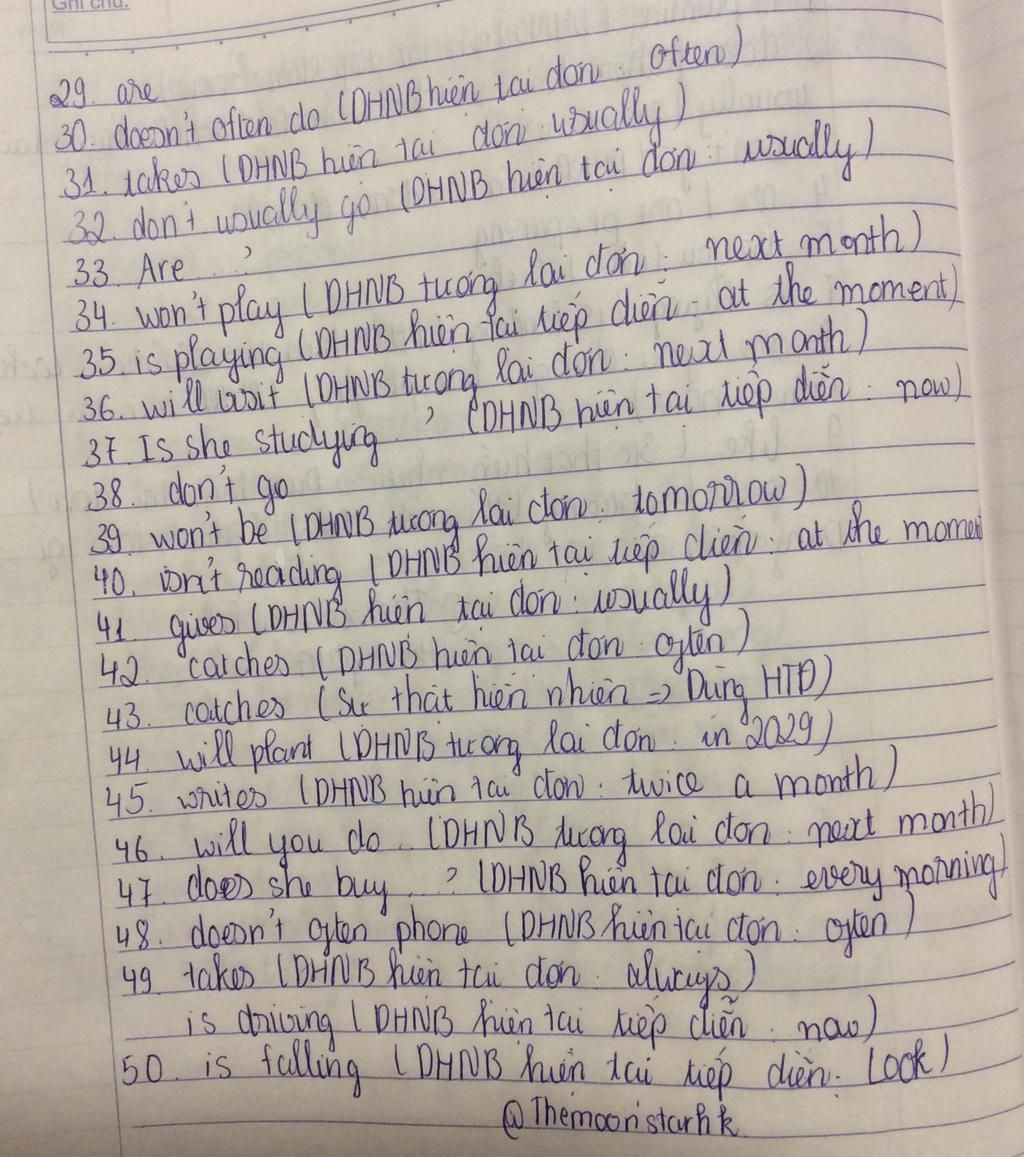 Ghi chú:
29. are
30. doesn't often do (DHNB hiện tại đơn: often)
31. takes (DHNB hiện tại đơn: usually)
32. don't usually go (DHNB hiện tại đơn: usually)
33. Are ?
34. won't play (DHNB tương lai đơn: next month)
35. is playing (DHNB hiện tại tiếp diễn: at the moment)
36. will visit (DHNB tương lai đơn: next month)
37. Is she studying ? (DHNB hiện tại tiếp diễn: now)
38. don't go
39. won't be (DHNB tương lai đơn: tomorrow)
40. isn't reading (DHNB hiện tại tiếp diễn: at the moment
41. gives (DHNB hiện tại đơn: usually)
42. catches (DHNB hiện tại đơn: often)
43. catches (Sự thật hiển nhiên => Dùng HTĐ)
44. will plant (DHNB tương lai đơn: in 2029)
45. writes (DHNB hiện tại đơn: twice a month)
46. will you do (DHNB tương lai đơn: next month)
47. does she buy ? (DHNB hiện tại đơn: every morning)
48. doesn't often phone (DHNB hiện tại đơn: often)
49. takes (DHNB hiện tại đơn: always)
is driving (DHNB hiện tại tiếp diễn: now)
50. is falling (DHNB hiện tại tiếp diễn: Look)
@Themoon'starhk